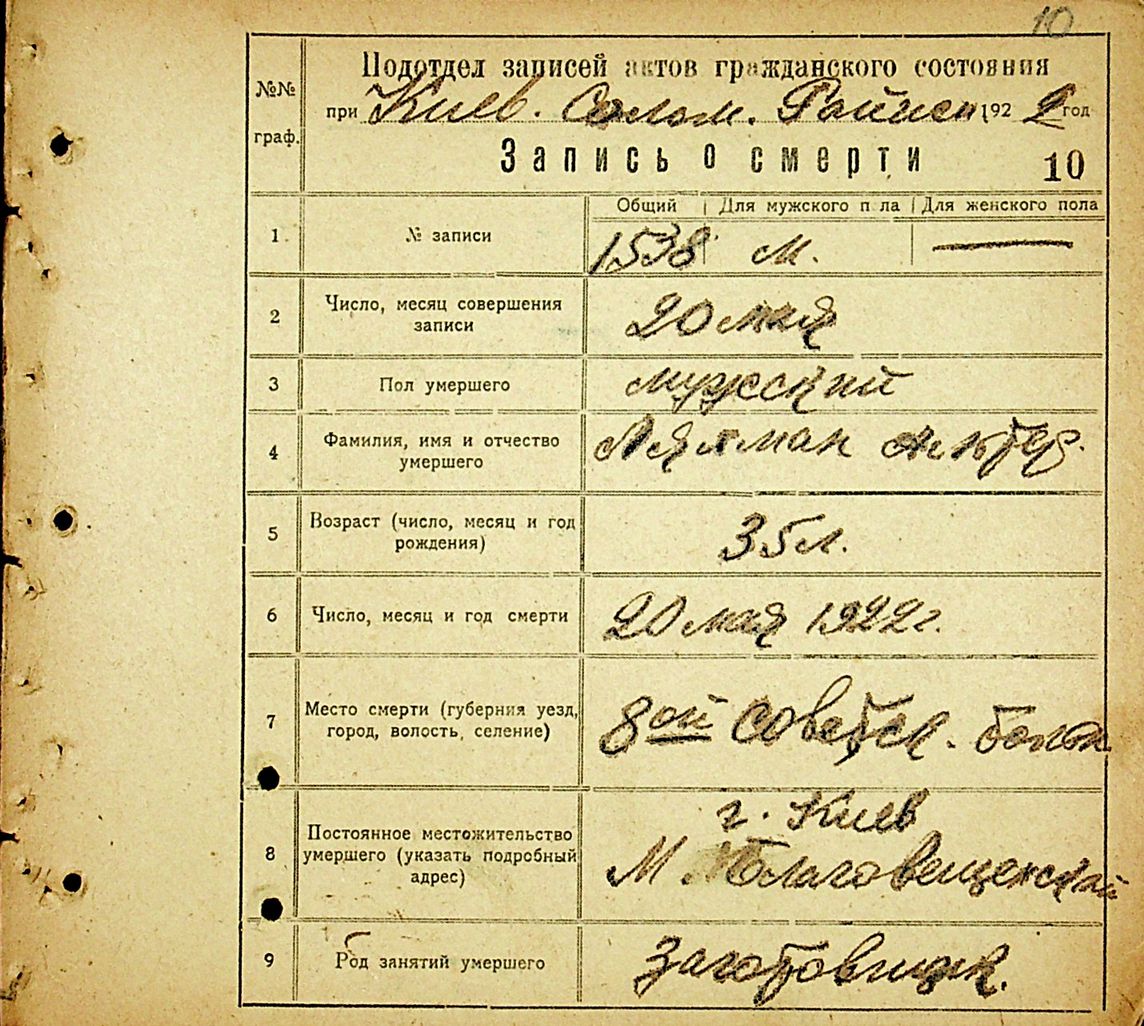 10
№№ граф.
Подотдел записей актов гражданского состояния
при Киев. Солом. Райисп 1922 год
Запись о смерти 10
Общий | Для мужского п ла | Для женского пола
1 № записи 1538 м. —
2 Число, месяц совершения
записи 20 мая
3 Пол умершего мужский
4 Фамилия, имя и отчество
умершего
5 Возраст (число, месяц и год
рождения) 35 л.
6 Число, месяц и год смерти 20 мая 1922 г.
7 Место смерти (губерния уезд,
город, волость, селение) 8ой Советск.
8 Постоянное местожительство
умершего (указать подробный
адрес)
г. Киев
М. Благовещенский
9 Род занятий умершего Заготовщик.